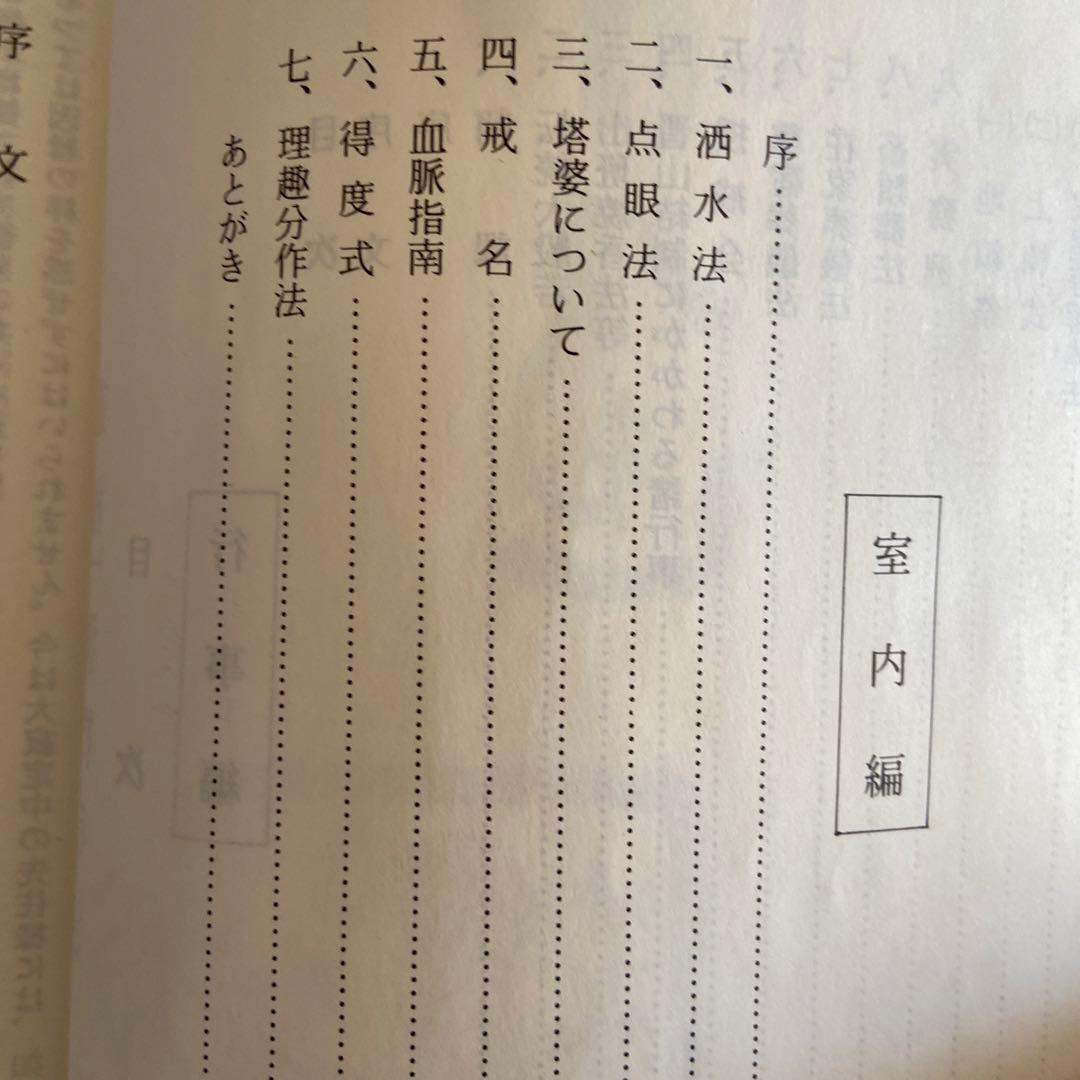 室内編
序
一、洒水法
二、点眼法
三、塔婆について
四、戒名
五、血脈指南
六、得度式
七、理趣分作法
あとがき
序文